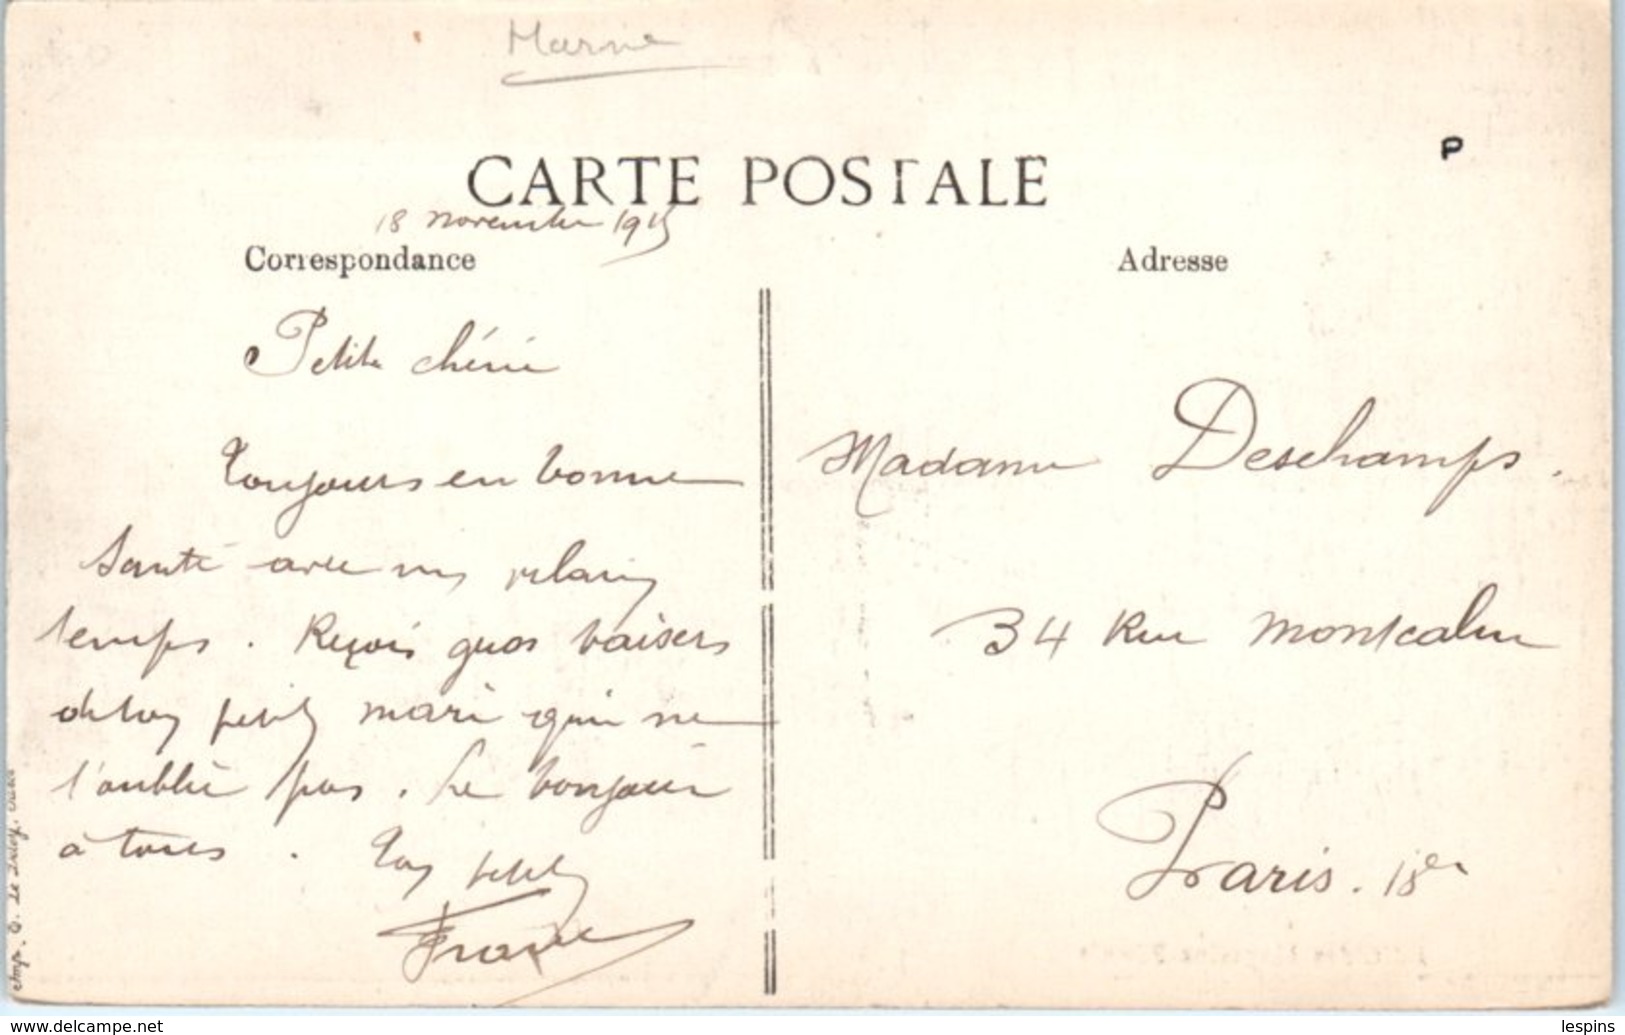 Marne
P
CARTE POSTALE
18 novembre 1915
Correspondance
Adresse
Petite chérie
Toujours en bonne
santé avec un vilain
temps. Reçois gros baisers
de ton petit mari qui ne
t'oublie pas. Le bonjour
à tous. Ton petit
Franc
Madame Deschamps.
34 Rue Montcalm
Paris. 18e
www.delcampe.net
lespins